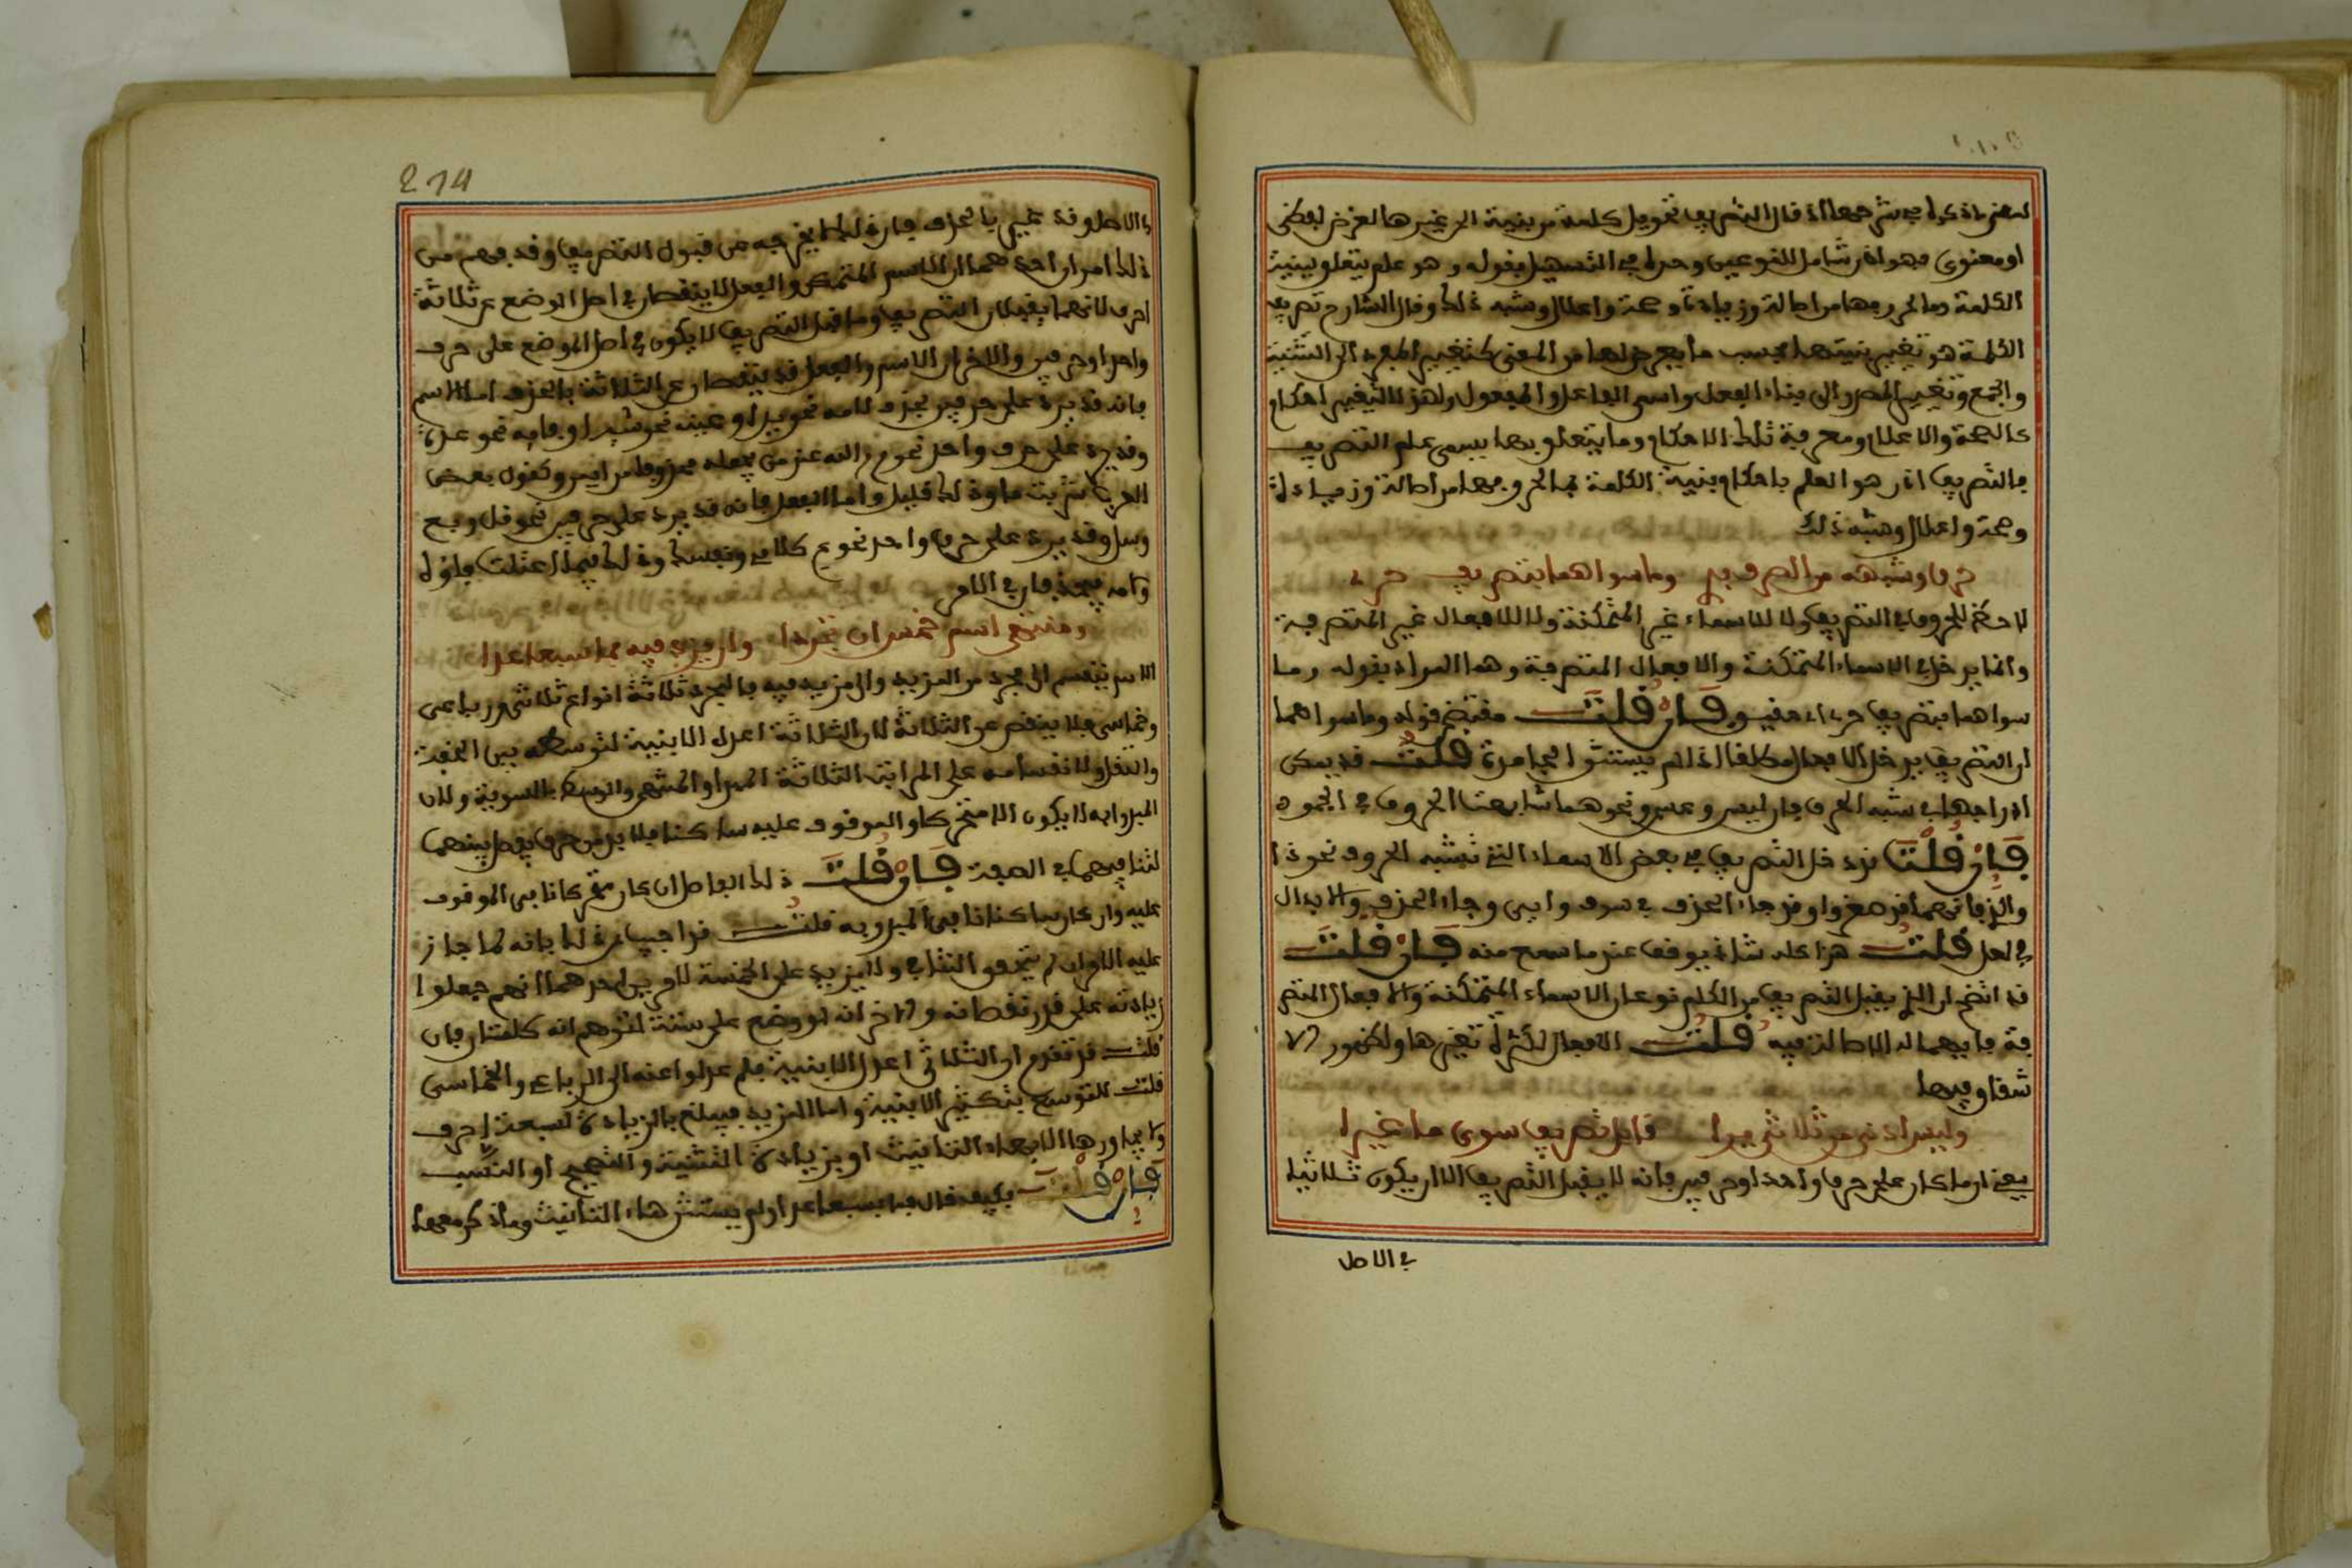 او معنوي فهو اذن شامل للنوعين وحده في التسهيل بقوله وهو علم يتعلق ببنية
الكلمة وما لحروفها من اصالة وزيادة وصحة واعلال وشبه ذلك وقال الشارح تصريف
الكلمة هو تغيير بنيتها بحسب ما يعرض لها من المعنى كتغيير المفرد الى التثنية
والجمع وتغيير المصدر الى بناء الفعل واسم الفاعل والمفعول ولهذا التغيير احكام
كالصحة والاعلال ومعرفة تلك الاحكام وما يتعلق بها يسمى علم التصريف
فالتصريف اذن هو العلم باحكام بنية الكلمة بما لحروفها من اصالة وزيادة
وصحة واعلال وشبه ذلك
حرف وشبهه من الصرف بري وما سواهما بتصريف حري
لا حظ للحروف في التصريف ولا للاسماء غير المتمكنة ولا للافعال غير المتصرفة
وانما يدخل في الاسماء المتمكنة والافعال المتصرفة وهما المراد بقوله وما
سواهما بتصريف حري اي حقيق فان قلت مقتضى قوله وما سواهما
ان التصريف يدخل الافعال مطلقا اذ لم يستثن الجامدة قلت قد يمكن
ادراجها في شبه الحرف فان ليس وعسى ونحوهما شابهت الحروف في الجمود
فان قلت قد دخل التصريف في بعض الاسماء التي تشبه الحروف نحو ذا
والذي فانهما قد صغروا وقد جاء الحذف في سوف وايس وجاء الحذف والابدال
في لعل قلت هذا كله شاذ يوقف عند ما سمع منه فان قلت
قد اتضح ان الذي يقبل التصريف من الكلم نوعان الاسماء المتمكنة والافعال المتصر
فة فايهما له الاصالة فيه قلت الافعال لكثرة تغيرها ولظهور الا
شتقاق فيها
وليس ادنى من ثلاثي يرى قابل تصريف سوى ما غيرا
يعني ان ما كان على حرف واحد او حرفين فانه لا يقبل التصريف الا ان يكون ثلاثيا
في الاصل
274
في الاصل وقد غير بالحذف فان ذلك لا يخرجه عن قبول التصريف وقد فهم من
ذلك امران احدهما ان الاسم المتمكن والفعل لا ينقصان في اصل الوضع عن ثلاثة
احرف لانهما يقبلان التصريف وما قبل التصريف لا يكون في اصل الوضع على حرف
واحد او حرفين والاخر ان الاسم والفعل قد ينقصان عن الثلاثة بالحذف اما الاسم
فانه قد يرد على حرفين بحذف لامه نحو يد او عينه نحو سه او فائه نحو عدة
وقد يرد على حرف واحد نحو م الله عند من يجعله محذوفا من ايمن وكقول بعض
العرب شربت ما وذلك قليل واما الفعل فانه قد يرد على حرفين نحو قل وبع
وسل وقد يرد على حرف واحد نحو ع كلامي و نفسك وذلك فيما اعتلت فاؤه
ولامه فيحذفان في الامر
ومنتهى اسم خمس ان تجردا وان يزد فيه فما سبعا عدا
الاسم ينقسم الى مجرد من المزيد والى مزيد فيه فالمجرد ثلاثة انواع ثلاثي ورباعي
وخماسي فلا ينقص عن الثلاثة لان الثلاثة اعدل الابنية لتوسطه بين الخفة
والثقل ولانقسامه على المراتب الثلاثة المبدا والمنتهى والوسط بالسوية ولان
المبدوا به لا يكون الا متحركا والموقوف عليه ساكنا فلا بد من حرف يفصل بينهما
لتنافيهما في الصفة فان قلت ذلك الفاصل ان كان متحركا نافى الموقوف
عليه وان كان ساكنا نافى المبدو به قلت
عليه الامران لم يتحقق التنافي ولا يزيد على الخمسة لامرين احدهما انهم جعلوا
زيادته على قدر نقصانه والاخر انه لو وضع على ستة لتوهم انه كلمتان فان
قلت قد تقدم ان الثلاثي اعدل الابنية فلم عدلوا عنه الى الرباعي والخماسي
قلت للتوسع بتكثير الابنية واما المزيد فيبلغ بالزيادة سبعة احرف
ولا يجاوزها الا بهاء التانيث او بزيادة التثنية والتصحيح او النسب
فان قلت فكيف قال فما سبعا عدا ولم يستثن هاء التانيث وما ذكر معها